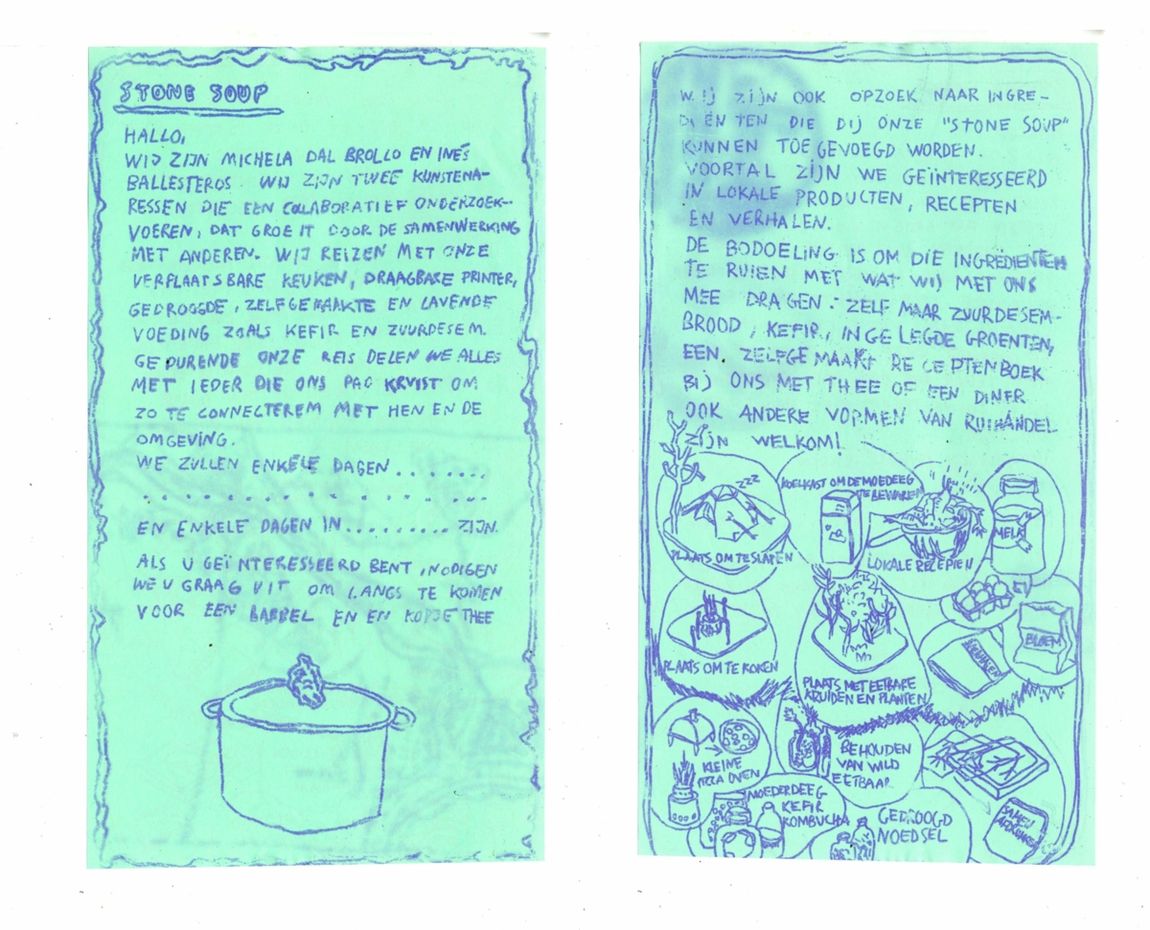 STONE SOUP
HALLO,
WIJ ZIJN MICHELA DAL BROLLO EN INÉS
BALLESTEROS. WIJ ZIJN TWEE KUNSTENA-
RESSEN DIE EEN COLABORATIEF ONDERZOEK-
VOEREN, DAT GROEIT DOOR DE SAMENWERKING
MET ANDEREN. WIJ REIZEN MET ONZE
VERPLAATSBARE KEUKEN, DRAAGBARE PRINTER,
GEDROOGDE, ZELFGEMAAKTE EN LAVENDE
VOEDING ZOALS KEFIR EN ZUURDESEM.
GEDURENDE ONZE REIS DELEN WE ALLES
MET IEDER DIE ONS PAD KRUIST OM
ZO TE CONNECTEREM MET HEN EN DE
OMGEVING.
WE ZULLEN ENKELE DAGEN.......
..............
EN ENKELE DAGEN IN.......... ZIJN.
ALS U GEÏNTERESSEERD BENT, NODIGEN
WE U GRAAG UIT OM LANGS TE KOMEN
VOOR EEN BABBEL EN EN KOPJE THEE
WIJ ZIJN OOK OPZOEK NAAR INGRE-
DIËNTEN DIE DIJ ONZE "STONE SOUP"
KUNNEN TOEGEVOEGD WORDEN.
VOORTAL ZIJN WE GEÏNTERESSEERD
IN LOKALE PRODUCTEN, RECEPTEN
EN VERHALEN.
DE BODOELING IS OM DIE INGREDIENTEN
TE RUIEN MET WAT WIJ MET ONS
MEE DRAGEN: ZELF MAAR ZUURDESEM-
BROOD, KEFIR, INGELEGDE GROENTEN,
EEN ZELFGEMAAKT RECEPTENBOEK
BIJ ONS MET THEE OF EEN DINER
OOK ANDERE VORMEN VAN RUILHANDEL
ZIJN WELKOM!
ZZZ
PLAATS OM TE SLAPEN
KOELKAST OM DE MOEDEEG
TE BEWAREN
LOKALE RECEPTEN
MELK
PLAATS OM TE KOKEN
PLAATS MET EETBARE
KRUIDEN EN PLANTEN
BLOEM
KLEINE
PIZZA OVEN
BEHOUDEN
VAN WILD
EETBAAR
MOEDERDEEG
KEFIR
KOMBUCHA
GEDROOGD
VOEDSEL
SAMEN